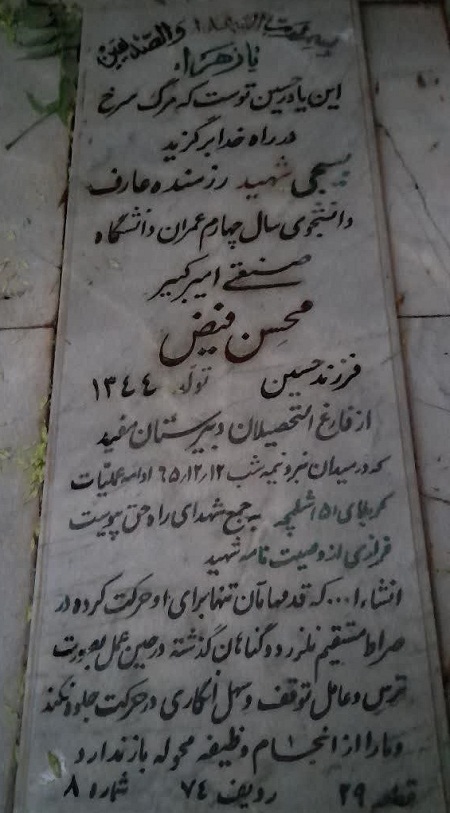 بسم رب الشهداء والصدیقین
یا زهراء
این یادر حسین توست که مرگ سرخ
در راه خدا برگزید
بسیجی شهید رزمنده عارف
دانشجوی سال چهارم عمران دانشگاه
صنعتی امیرکبیر
محسن فیض
فرزند حسین تولد ۱۳۴۴
از فارغ التحصیلان دبیرستان مفید
که در میدان نبرد نیمه شب ۶۵/۱۲/۱۲ ادامه عملیات
کربلای ۵ شلمچه به جمع شهدای راه حق پیوست
فرازی از وصیت نامه شهید
انشاء ا... که قدمهامان تنها برای او حرکت کرده در
صراط مستقیم نلزرد و گناهان گذشته در حین عمل بصورت
ترس و عامل توقف و سهل انگاری در حرکت جلوه نکند
و ما را از انجام وظیفه محوله باز ندارد
قطعه ۲۹ ردیف ۷٤ شماره ۸